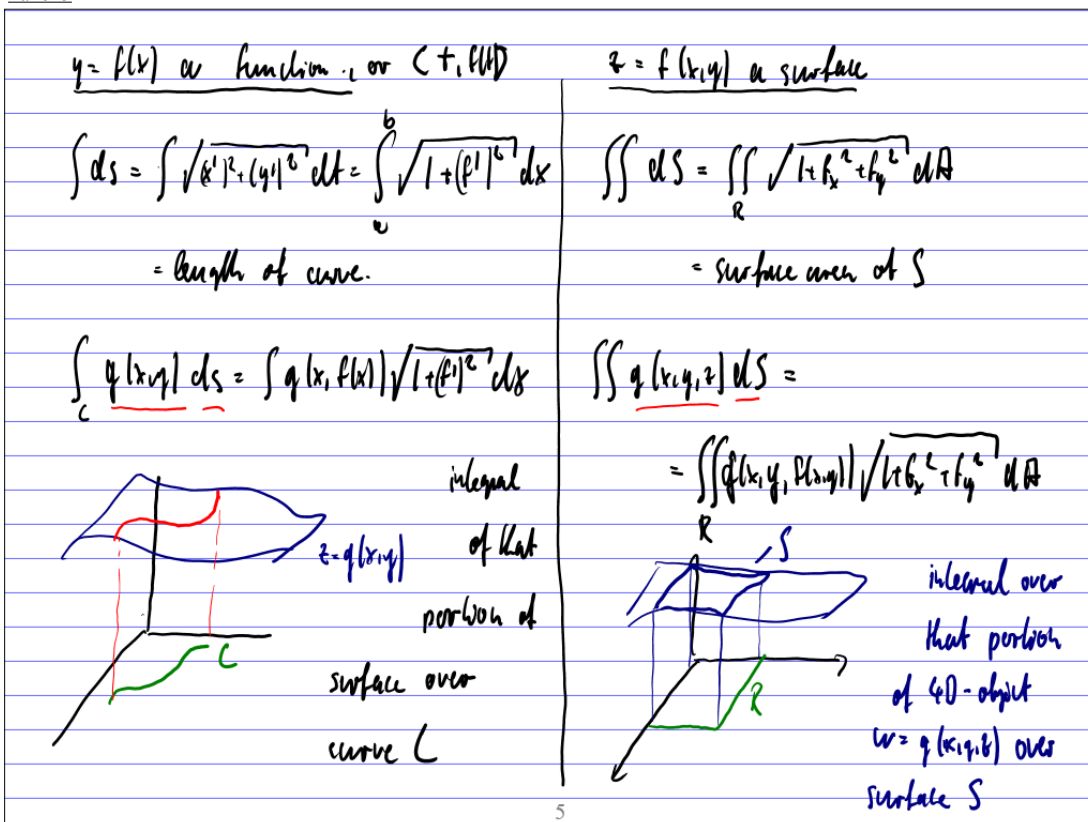 y = f(x) a function, or (t, f(t))
∫ ds = ∫ √((x')² + (y')²) dt = ∫_a^b √(1 + (f')²) dx
= length of curve.
∫_C g(x,y) ds = ∫ g(x, f(x)) √(1 + (f')²) dx
z = g(x,y)
C
integral
of that
portion of
surface over
curve C
z = f(x,y) a surface
∬ dS = ∬_R √(1 + f_x² + f_y²) dA
= surface area of S
∬ g(x,y,z) dS =
= ∬_R g(x, y, f(x,y)) √(1 + f_x² + f_y²) dA
S
R
integral over
that portion
of 4D-object
w = g(x,y,z) over
surface S
5